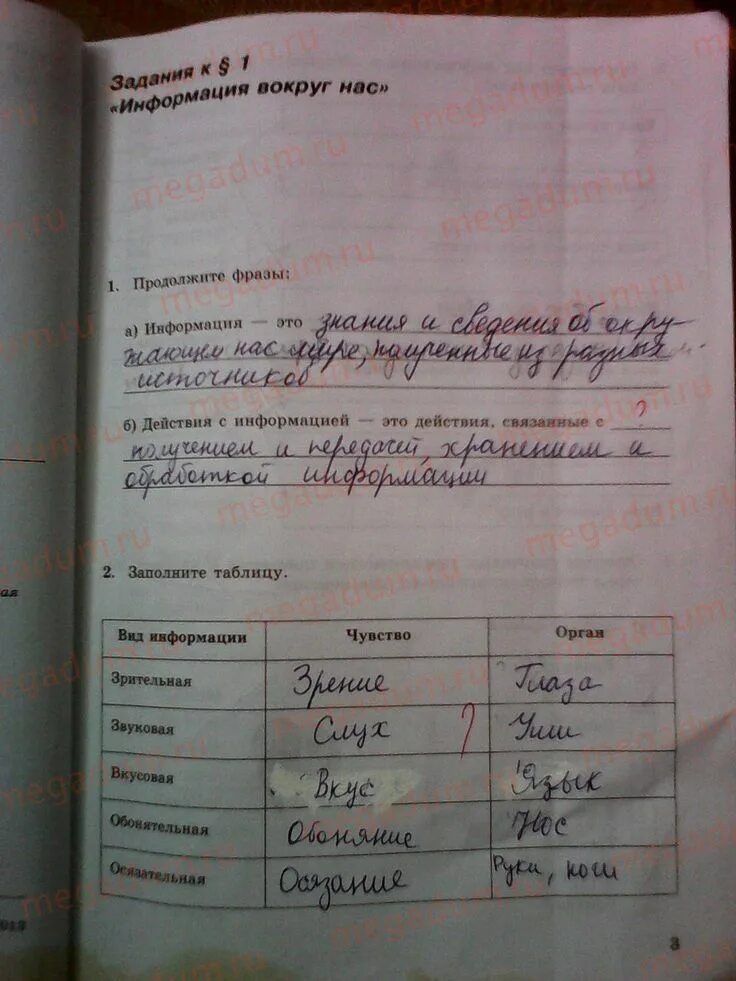 Задания к § 1
«Информация вокруг нас»
1. Продолжите фразы:
а) Информация — это знания и сведения об окру-
жающем нас мире, полученные из разных
источников
б) Действия с информацией — это действия, связанные с ?
получением и передачей, хранением и
обработкой информации
2. Заполните таблицу.
Вид информации Чувство Орган
Зрительная Зрение Глаза
Звуковая Слух ? Уши
Вкусовая Вкус Язык
Обонятельная Обоняние Нос
Осязательная Осязание Руки, ноги
ая
013
3
megadum.ru